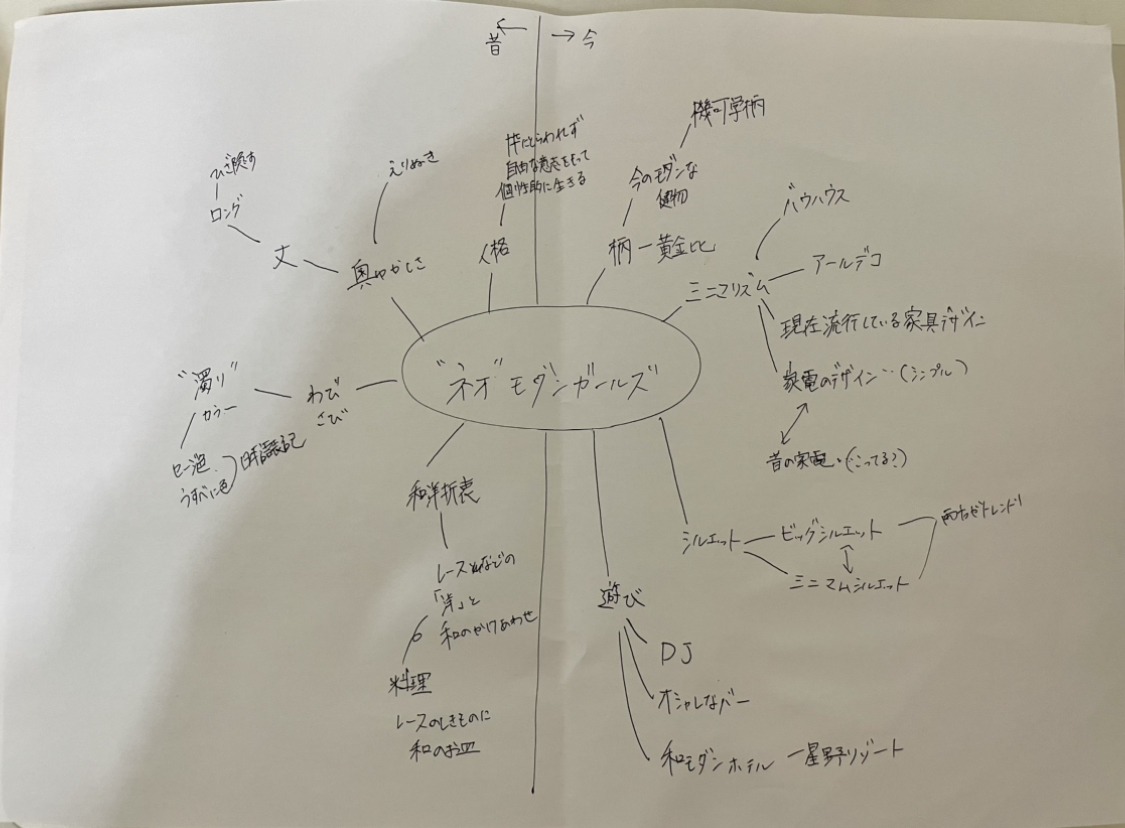 昔 ← → 今
"ネオ" モダンガールズ
人格
枠にとらわれず
自由な意志をもって
個性的に生きる
奥ゆかしさ
えりぬき
丈
ロング
ひざ隠す
わび
さび
"濁り"
カラー
うすべに色
和洋折衷
レースなどの
「洋」と
和のかけあわせ
料理
レースのしきものに
和のお皿
柄 ー 黄金比
今のモダンな
建物
機可学柄
ミニマリズム
バウハウス
アールデコ
現在流行している家具デザイン
家電のデザイン…(シンプル)
昔の家電・(…こってる?)
シルエット
ビッグシルエット
ミニマムシルエット
遊び
DJ
オシャレなバー
和モダンホテル ー 星野リゾート